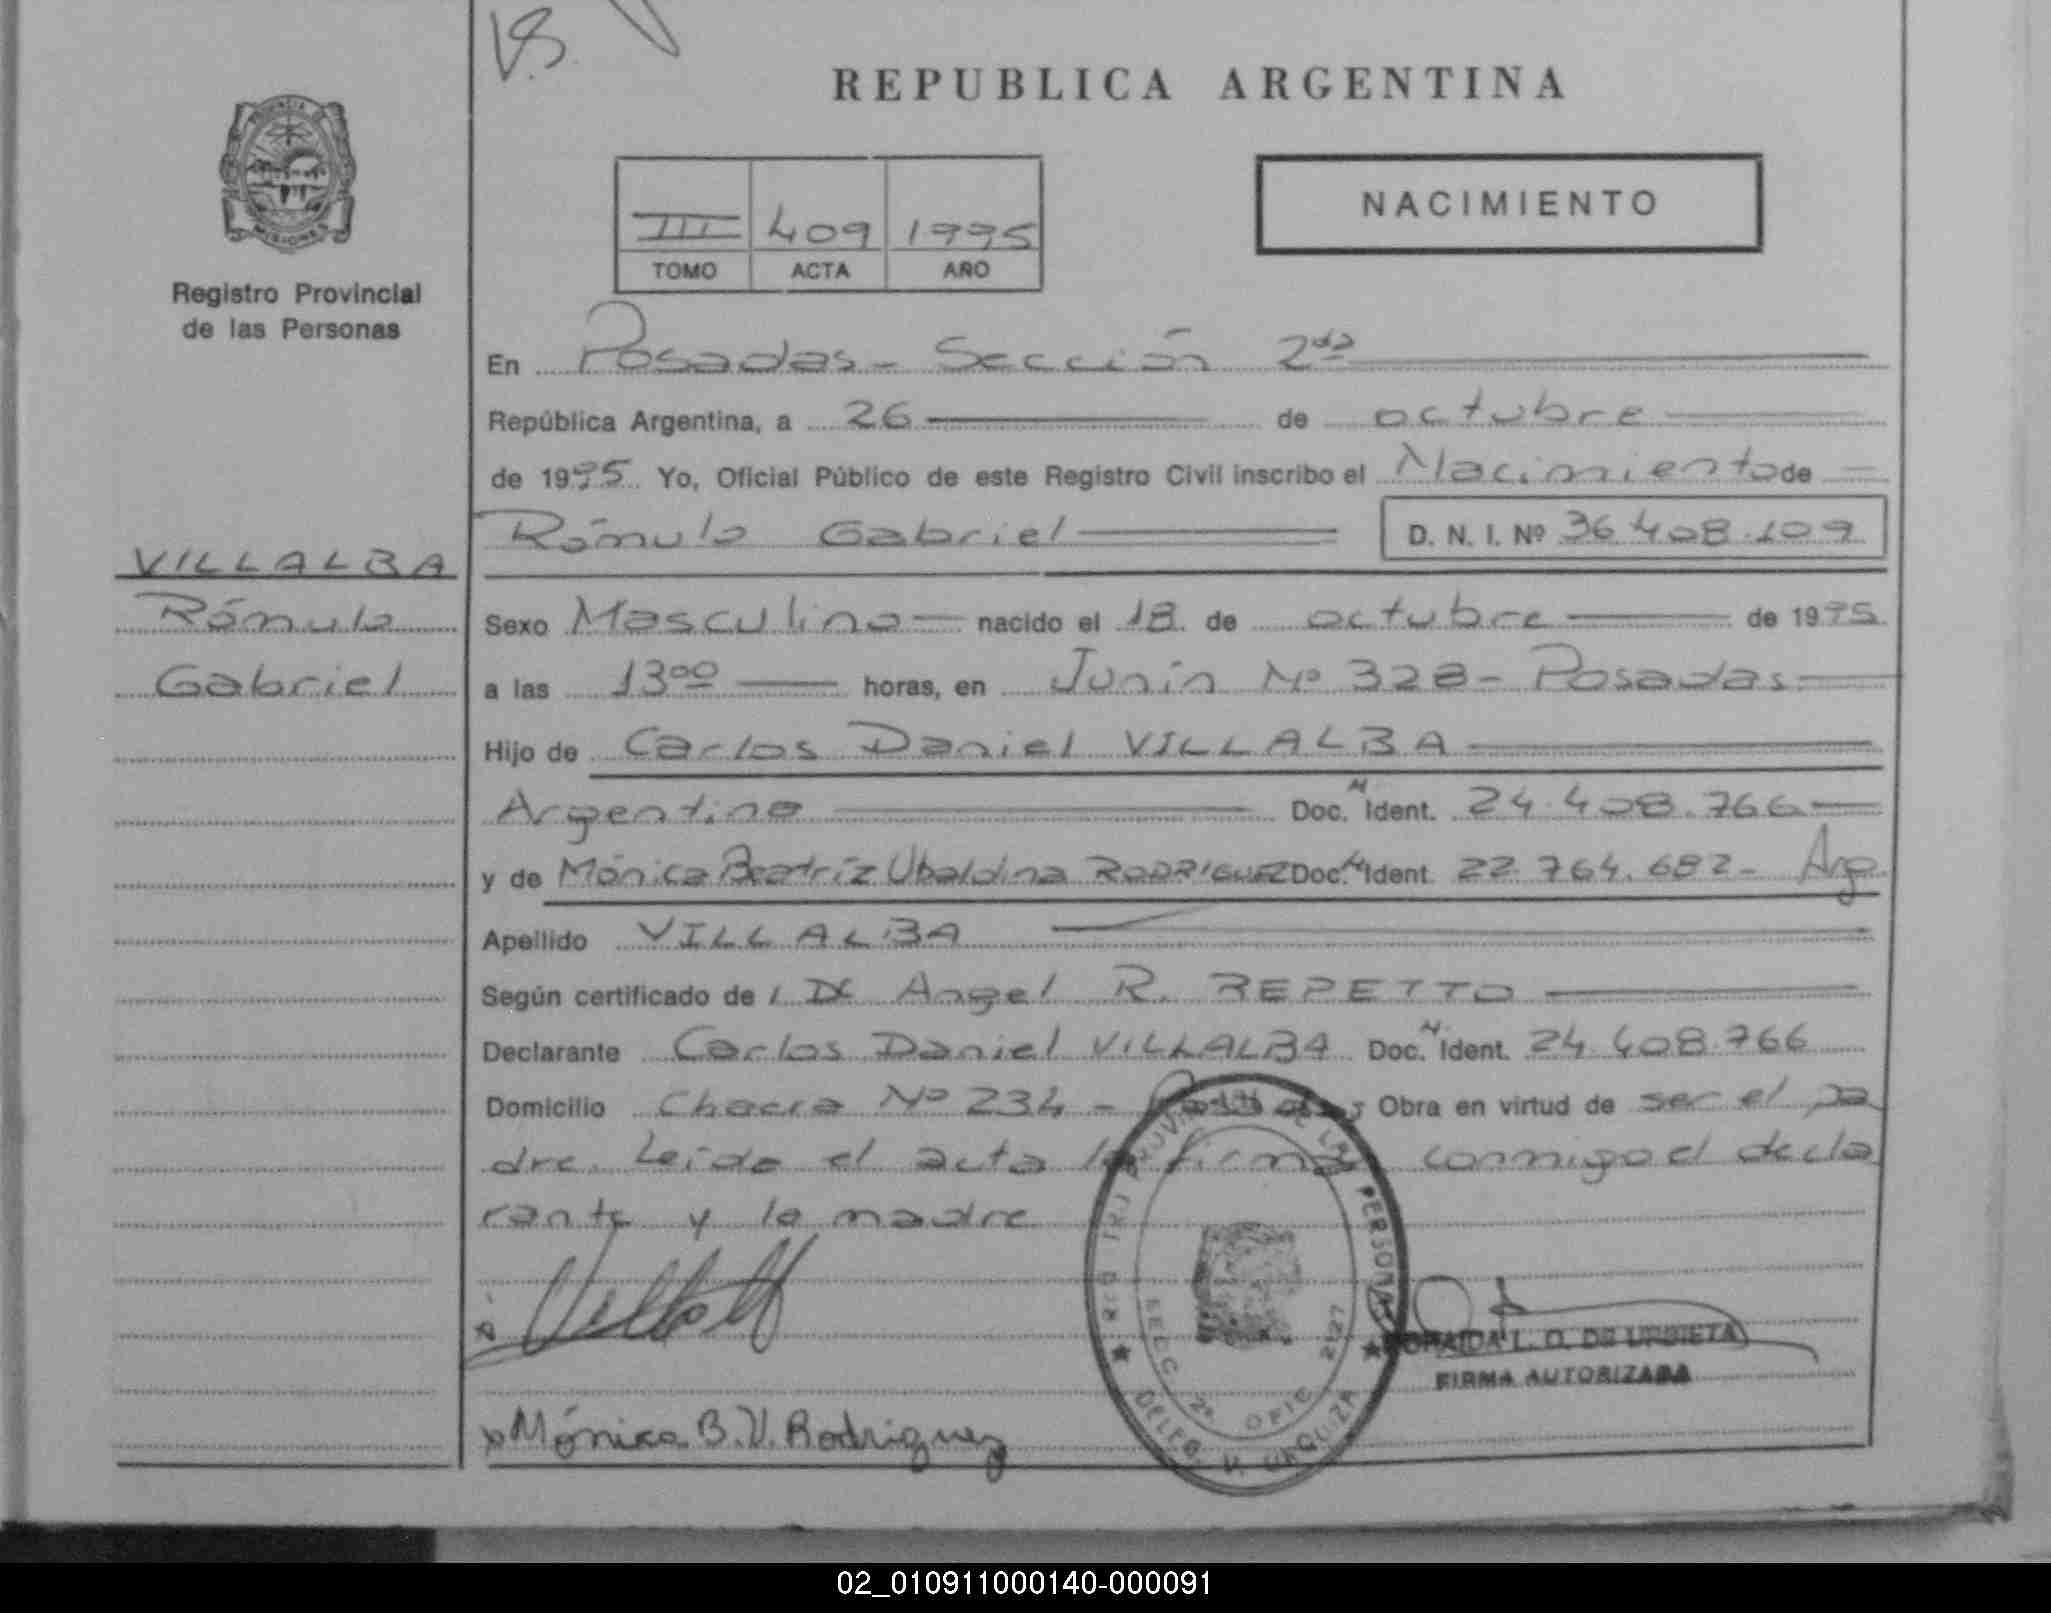 V.S.
REPUBLICA ARGENTINA
NACIMIENTO
III 409 1995
TOMO ACTA AÑO
PROVINCIA DE MISIONES
Registro Provincial
de las Personas
VILLALBA
Rómulo
Gabriel
En Posadas - Sección 2da
República Argentina, a 26 de octubre
de 1995 Yo, Oficial Público de este Registro Civil inscribo el Nacimiento de
Rómulo Gabriel D. N. I. Nº 36.408.109
Sexo Masculino nacido el 18 de octubre de 1995
a las 13oo horas, en Junín Nº 328 - Posadas
Hijo de Carlos Daniel VILLALBA
Argentino Doc. N Ident. 24.408.766
y de Mónica Beatríz Ubaldina RODRIGUEZ Doc. N Ident. 22.764.682 - Arg.
Apellido VILLALBA
Según certificado de Angel R. REPETTO
Declarante Carlos Daniel VILLALBA Doc. N Ident. 24.408.766
Domicilio Chacra Nº 234 - Posadas Obra en virtud de ser el pa
dre. Leída el acta la firma conmigo el decla
rante y la madre
Mónica B.U. Rodriguez
PROVINCIAL DE LAS PERSONAS
SECC 2ª OFIC 2127
DELEG. V. URQUIZA
L. O. DE URBIETA
FIRMA AUTORIZADA
02_010911000140-000091